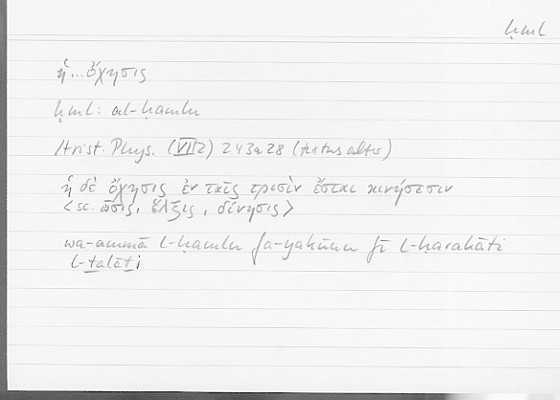 ḥml
ἡ...ὄχησις
ḥml: al-ḥamlu
Arist. Phys. (VII 2) 243a28 (textus alter)
ἡ δὲ ὄχησις ἐν ταῖς τρισὶν ἔσται κινήσεσιν
<sc. ὦσις, ἕλξις, δίνησις>
wa-ammā l-ḥamlu fa-yakūnu fī l-ḥarakāti
l-ṯalāṯi